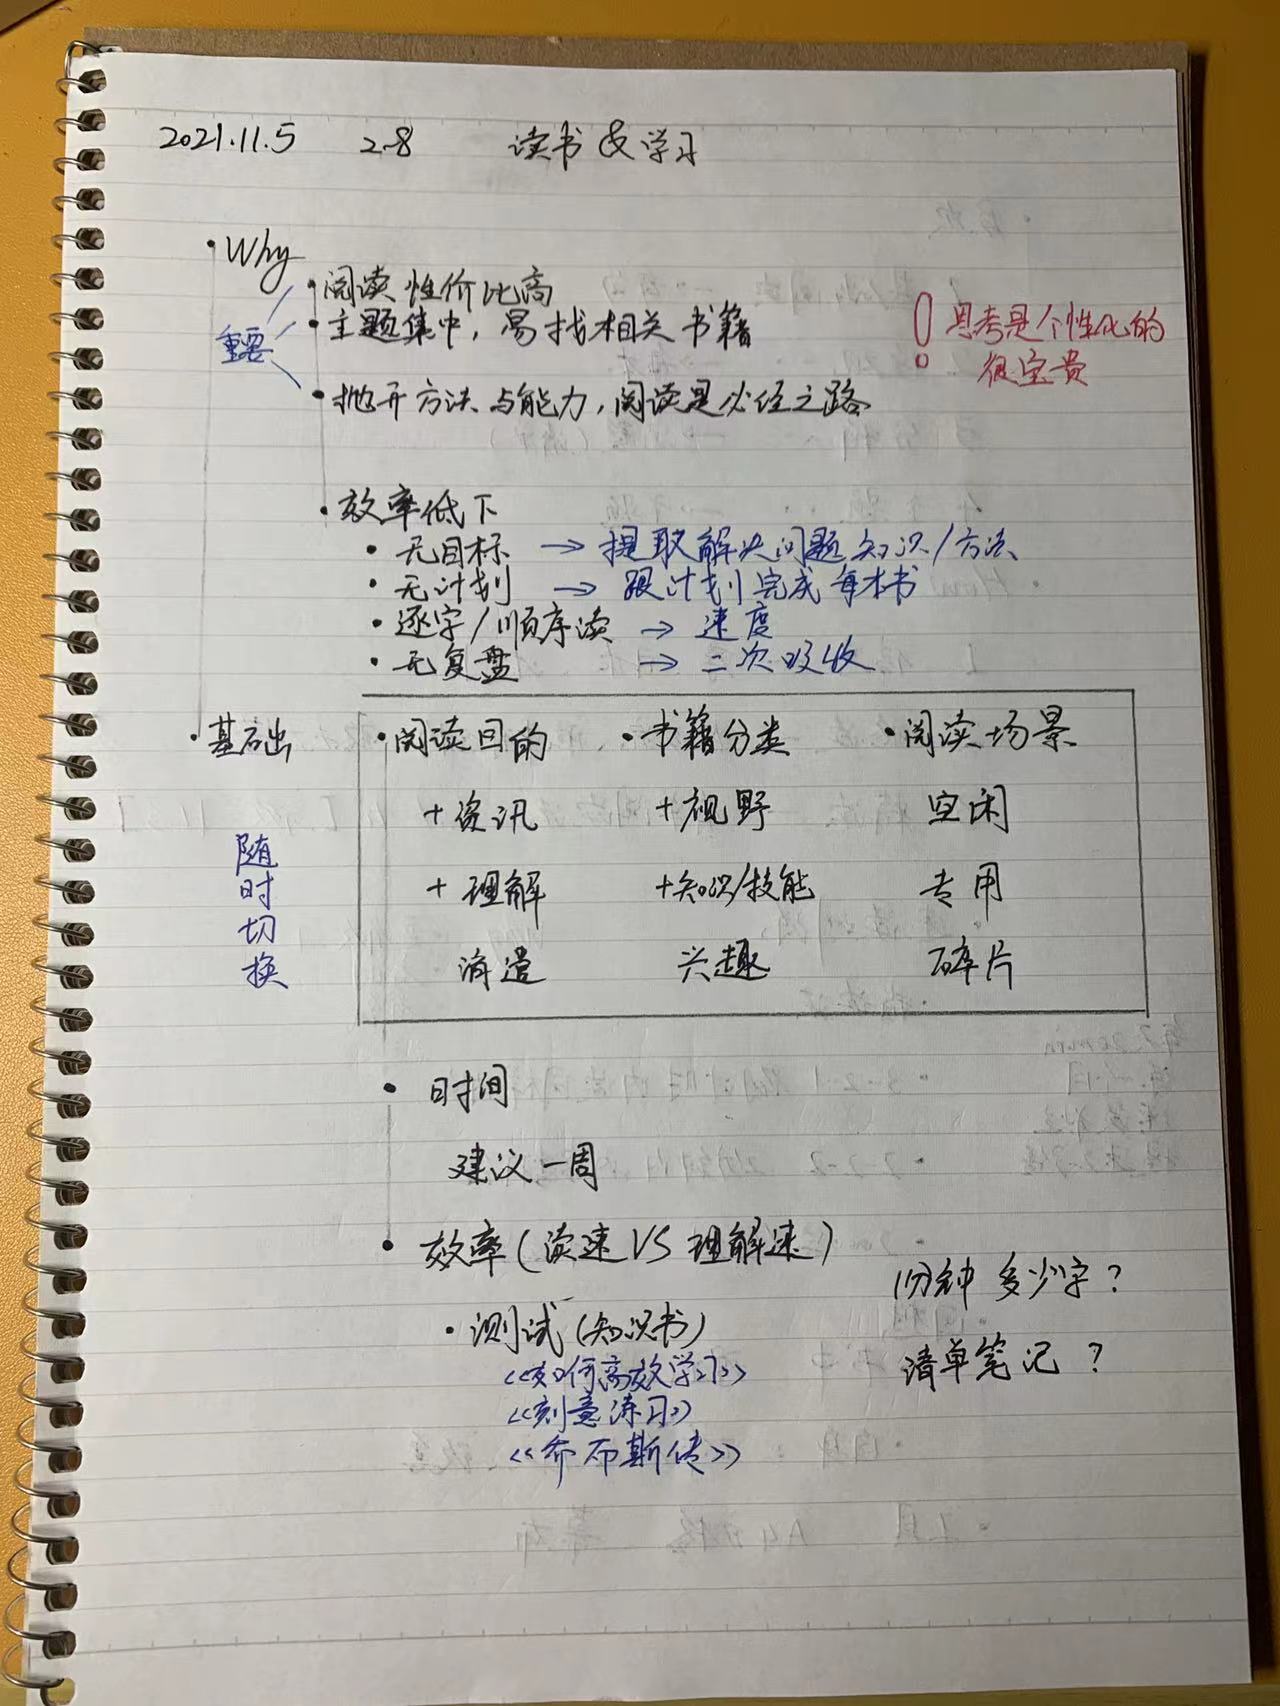 2021.11.5 2-8 读书&学习
·Why
·阅读性价比高
重要 ·主题集中，易找相关书籍
！思考是个性化的
很宝贵
·抛开方法与能力，阅读是必经之路
·效率低下
·无目标 → 提取解决问题知识/方法
·无计划 → 跟计划完成每本书
·逐字/顺序读 → 速度
·无复盘 → 二次吸收
·基础 ·阅读目的 ·书籍分类 ·阅读场景
+资讯 +视野 空闲
随时切换
+理解 +知识/技能 专用
消遣 兴趣 碎片
·时间
建议一周
·效率(读速VS理解速)
1分钟多少字？
·测试(知识书)
清单笔记？
《如何高效学习》
《刻意练习》
《乔布斯传》